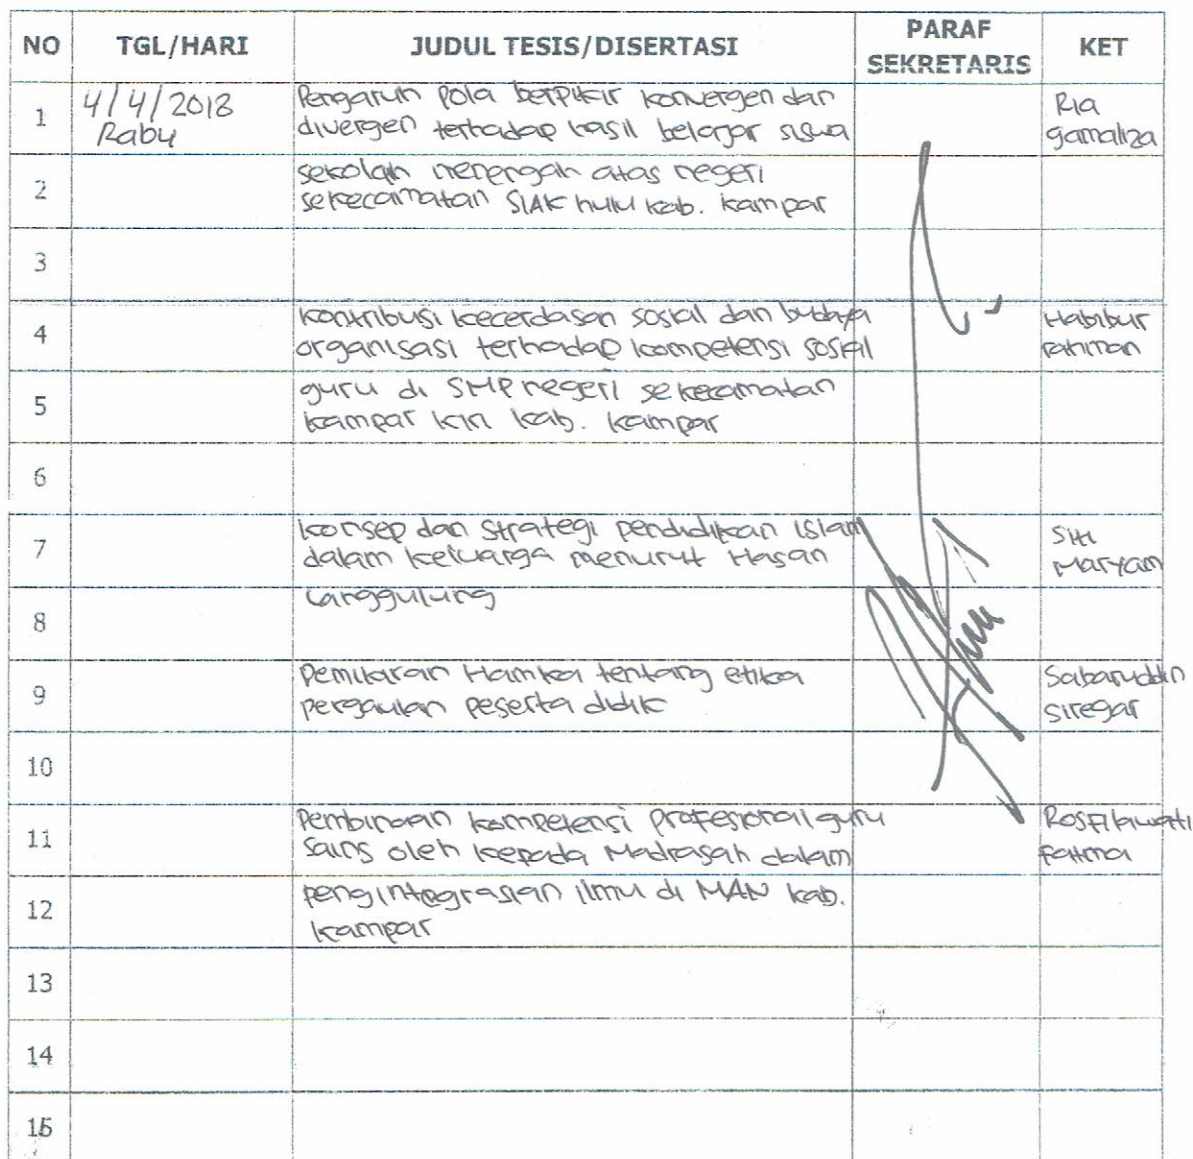 NO TGL/HARI JUDUL TESIS/DISERTASI PARAF SEKRETARIS KET
1 4/4/2018 Pengaruh pola berpikir konvergen dan Ria
Rabu divergen terhadap hasil belajar siswa gamaliza
2 sekolah menengah atas negeri
sekecamatan SIAK hulu kab. kampar
3
4 kontribusi kecerdasan sosial dan budaya Habibur
organisasi terhadap kompetensi sosial rahman
5 guru di SMP negeri sekecamatan
kampar kiri kab. kampar
6
7 konsep dan strategi pendidikan islam Siti
dalam keluarga menurut Hasan Maryam
8 Langgulung
9 Pemikiran Hamka tentang etika Sabaruddin
pergaulan peserta didik siregar
10
11 Pembinaan kompetensi profesional guru
sains oleh kepada Madrasah dalam fatma
12 pengintegrasian ilmu di MAN kab.
kampar
13
14
15